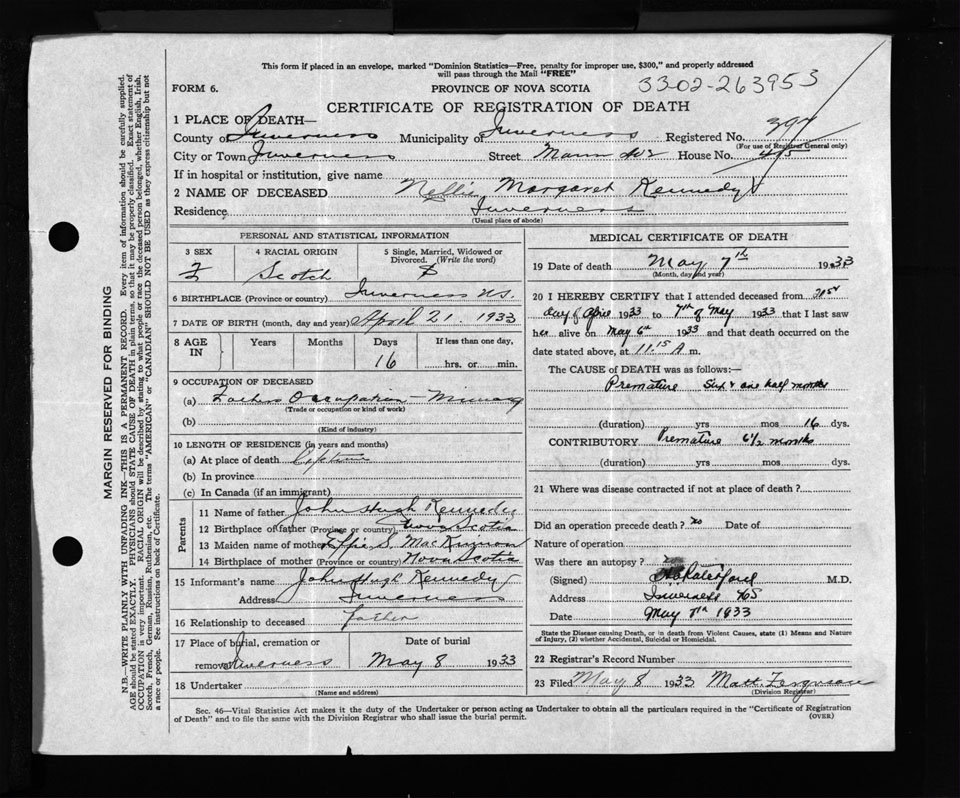 This form if placed in an envelope, marked "Dominion Statistics—Free, penalty for improper use, $300," and properly addressed
will pass through the Mail "FREE"
3302-263953
FORM 6.
PROVINCE OF NOVA SCOTIA
CERTIFICATE OF REGISTRATION OF DEATH
397
1 PLACE OF DEATH—
County of Inverness Municipality of Inverness Registered No.
(For use of Registrar General only)
City or Town Inverness Street House No.
If in hospital or institution, give name
2 NAME OF DECEASED Nellie Margaret Kennedy
Residence Inverness
(Usual place of abode)
PERSONAL AND STATISTICAL INFORMATION
3 SEX 4 RACIAL ORIGIN 5 Single, Married, Widowed or
Divorced. (Write the word)
F Scotch S
6 BIRTHPLACE (Province or country) Inverness N.S.
7 DATE OF BIRTH (month, day and year) April 21. 1933
8 AGE IN Years Months Days If less than one day,
16 hrs. or min.
9 OCCUPATION OF DECEASED
(a) Fathers Occupation — Mining
(Trade or occupation or kind of work)
(b)
(Kind of industry)
10 LENGTH OF RESIDENCE (in years and months)
(a) At place of death
(b) In province
(c) In Canada (if an immigrant)
Parents
11 Name of father John Hugh Kennedy
12 Birthplace of father (Province or country) Nova Scotia
13 Maiden name of mother Effie S. MacKinnon
14 Birthplace of mother (Province or country) Nova Scotia
15 Informant's name John Hugh Kennedy
Address Inverness
16 Relationship to deceased father
17 Place of burial, cremation or Date of burial
removal Inverness May 8 1933
18 Undertaker
(Name and address)
MEDICAL CERTIFICATE OF DEATH
19 Date of death May 7th 1933
(Month, day and year)
20 I HEREBY CERTIFY that I attended deceased from 21st
day of April 1933 to 7th of May 1933 that I last saw
her alive on May 6th 1933 and that death occurred on
date stated above, at 11.15 A m.
The CAUSE of DEATH was as follows:—
Premature Six & one half months
(duration) yrs mos 16 dys.
CONTRIBUTORY Premature 6½ months
(duration) yrs mos dys.
21 Where was disease contracted if not at place of death ?
Did an operation precede death ? no Date of
Nature of operation
Was there an autopsy ?
(Signed) M.D.
Address Inverness NS
Date May 7th 1933
State the Disease causing Death, or in death from Violent Causes, state (1) Means and Nature
of Injury, (2) whether Accidental, Suicidal or Homicidal.
22 Registrar's Record Number
23 Filed May 8 1933 Matt. Ferguson
(Division Registrar)
Sec. 46—Vital Statistics Act makes it the duty of the Undertaker or person acting as Undertaker to obtain all the particulars required in the "Certificate of Registration
of Death" and to file the same with the Division Registrar who shall issue the burial permit.
(OVER)
MARGIN RESERVED FOR BINDING
N.B.—WRITE PLAINLY WITH UNFADING INK—THIS IS A PERMANENT RECORD. Every item of information should be carefully supplied.
AGE should be stated EXACTLY. PHYSICIANS should STATE CAUSE OF DEATH in plain terms, so that it may be properly classified. Exact statement of
OCCUPATION is very important. RACIAL ORIGIN will be described by stating to what people or race the deceased person belonged, whether English, Irish,
Scotch, French, German, Russian, Ruthenian, etc. The terms "AMERICAN" or "CANADIAN" SHOULD NOT BE USED as they express citizenship but not
a race or people. See instructions on back of Certificate.